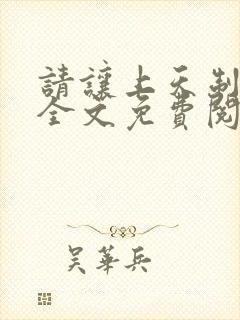 請讓上天制
全文免費閱
吳華兵